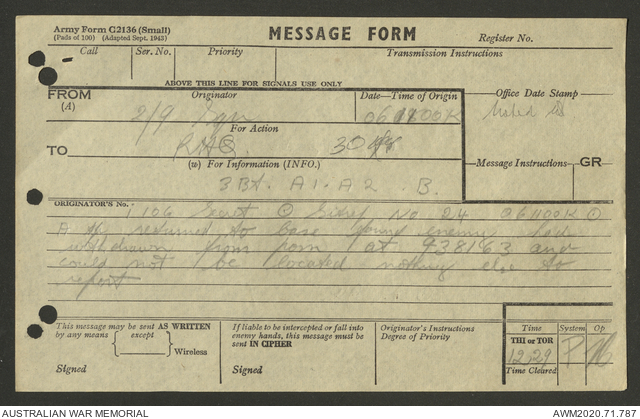 Army Form C2136 (Small)
(Pads of 100) (Adapted Sept. 1943)
MESSAGE FORM
Register No.
Call Ser. No. Priority Transmission Instructions
ABOVE THIS LINE FOR SIGNALS USE ONLY
FROM
(A)
Originator
Date—Time of Origin
Office Date Stamp
2/9
061100K
For Action
TO
(w) For Information (INFO.)
Message Instructions GR
3 Bt. A1. A2 B.
ORIGINATOR'S No.
106 Secret Sitrep No 24 061100K
A returned to base found enemy had
withdrawn from posn at 938163 and
could not be located nothing else to
report
This message may be sent AS WRITTEN
by any means except
Wireless
Signed
If liable to be intercepted or fall into
enemy hands, this message must be
sent IN CIPHER
Signed
Originator's Instructions
Degree of Priority
Time System Op
THI or TOR
1229 P
Time Cleared
AUSTRALIAN WAR MEMORIAL
AWM2020.71.787